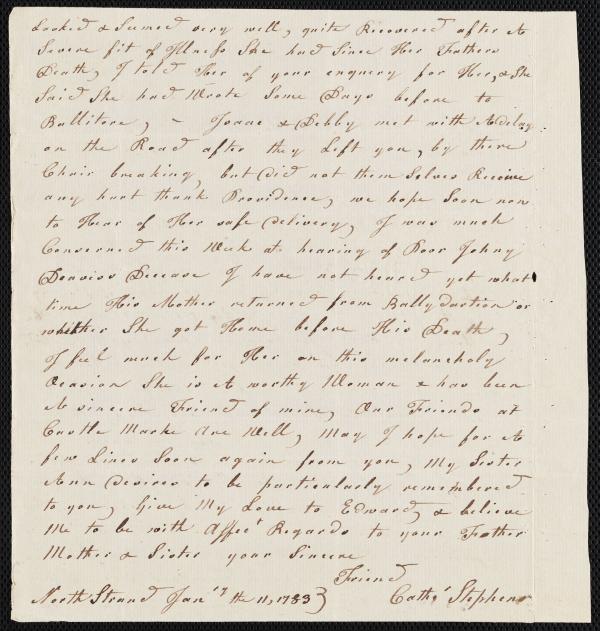 Looked & Seemed very well, quite Recovered after A
Severe fit of Illness She had Since Her Fathers
Death, I told Her of your enquery for Her, & She
Said She had Wrote Some Days before to
Ballitore, - Isaac & Debby met with A delay
on the Road after they Left you, by there
Chair breaking, but did not them Selves Receive
any hurt thank Providence, we hope Soon now
to Hear of Her safe delivery, I was much
Concerned this Week at hearing of Poor Johny
Decease I have not heard yet what
time His Mother returned from Ballydarton or
whither She got Home before His Death,
I feel much for Her on this melancholy
Ocasion She is A worthy Woman & has been
A sincere Friend of mine, Our Friends at
Castle Marke Are Well, May I hope for A
few Lines Soon again from you, My Sister
Ann desires to be particularly remembered
to you, Give My Love to Edward, & believe
Me to be with Affect Regards to your Father
Mother & Sister your Sincere
Friend
North Strand Jany the 11, 1783} Cathe Stephens